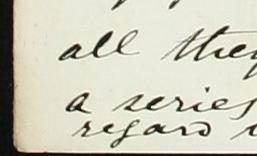 all they
a series
regard